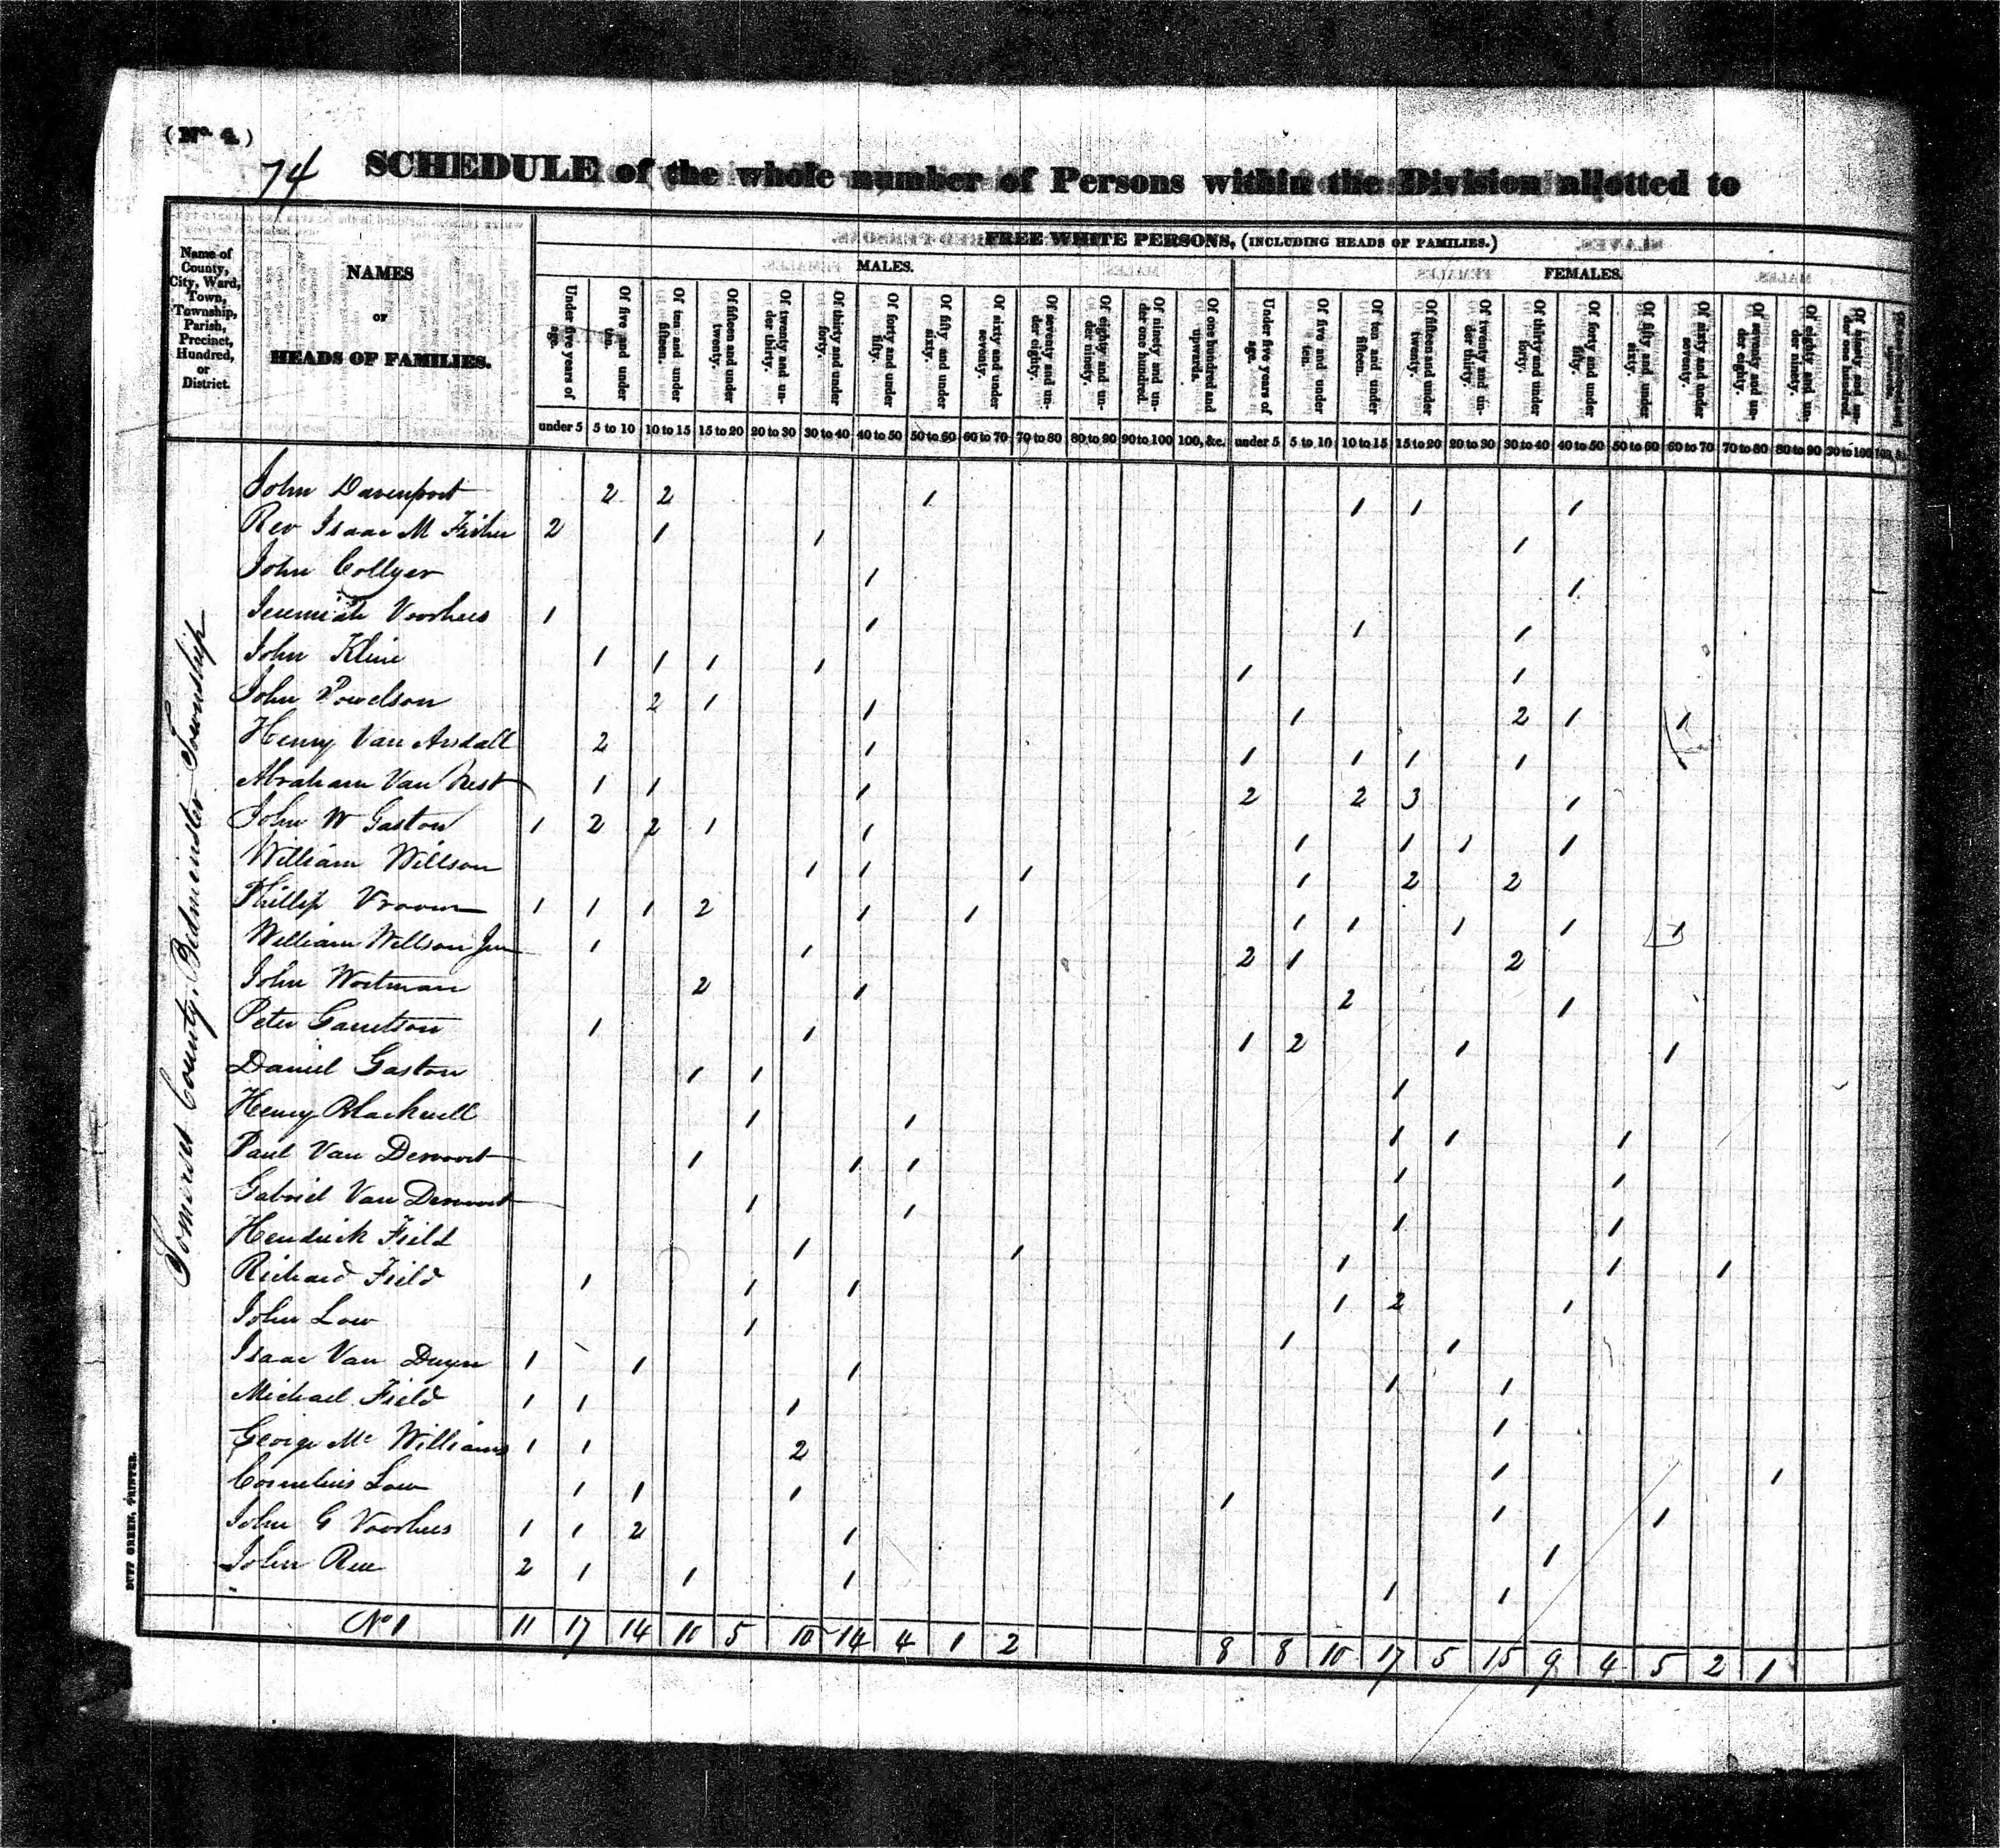 (No. 4.)
74
SCHEDULE of the whole number of Persons within the Division allotted to
FREE WHITE PERSONS, (INCLUDING HEADS OF FAMILIES.)
MALES. FEMALES.
Name of County, City, Ward, Town, Township, Parish, Precinct, Hundred, or District.
NAMES
or
HEADS OF FAMILIES.
Under five years of age. Of five and under ten. Of ten and under fifteen. Of fifteen and under twenty. Of twenty and under thirty. Of thirty and under forty. Of forty and under fifty. Of fifty and under sixty. Of sixty and under seventy. Of seventy and under eighty. Of eighty and under ninety. Of ninety and under one hundred. Of one hundred and upwards. Under five years of age. Of five and under ten. Of ten and under fifteen. Of fifteen and under twenty. Of twenty and under thirty. Of thirty and under forty. Of forty and under fifty. Of fifty and under sixty. Of sixty and under seventy. Of seventy and under eighty. Of eighty and under ninety. Of ninety and under one hundred.
under 5 5 to 10 10 to 15 15 to 20 20 to 30 30 to 40 40 to 50 50 to 60 60 to 70 70 to 80 80 to 90 90 to 100 100, &c. under 5 5 to 10 10 to 15 15 to 20 20 to 30 30 to 40 40 to 50 50 to 60 60 to 70 70 to 80 80 to 90 90 to 100
Somerset County, Bedminster Township
John Davenport 2 2 1 1 1 1
Rev Isaac M Fisher 2 1 1 1
John Collyer 1 1
Jeremiah Voorhees 1 1 1 1
John Kline 1 1 1 1 1 1
John Powelson 2 1 1 1 2 1 1
Henry Van Arsdall 2 1 1 1 1 1
Abraham Van Nest 1 1 1 2 2 3 1
John W Gaston 1 2 2 1 1 1 1 1 1
William Willson 1 1 1 1 2 2
Phillip Vroom 1 1 1 2 1 1 1 1 1 1 1
William Willson Jun 1 1 2 1 2
John Wortman 2 1 2 1
Peter Garretson 1 1 1 2 1 1
Daniel Gaston 1 1 1
Henry Blackwell 1 1 1 1 1
Paul Van Dervoort 1 1 1 1 1
Gabriel Van Dervoort 1 1 1 1
Hendrick Field 1 1 1 1 1
Richard Field 1 1 1 1 2 1
John Low 1 1 1
Isaac Van Duyn 1 1 1 1 1
Michael Field 1 1 1 1
George Mc Williams 1 1 2 1 1
Cornelius Low 1 1 1 1 1 1
John G Voorhees 1 1 2 1 1
John Rue 2 1 1 1 1 1
No 1 11 17 14 10 5 10 14 4 1 2 8 8 10 17 5 15 9 4 5 2 1
DUFF GREEN, PRINTER.